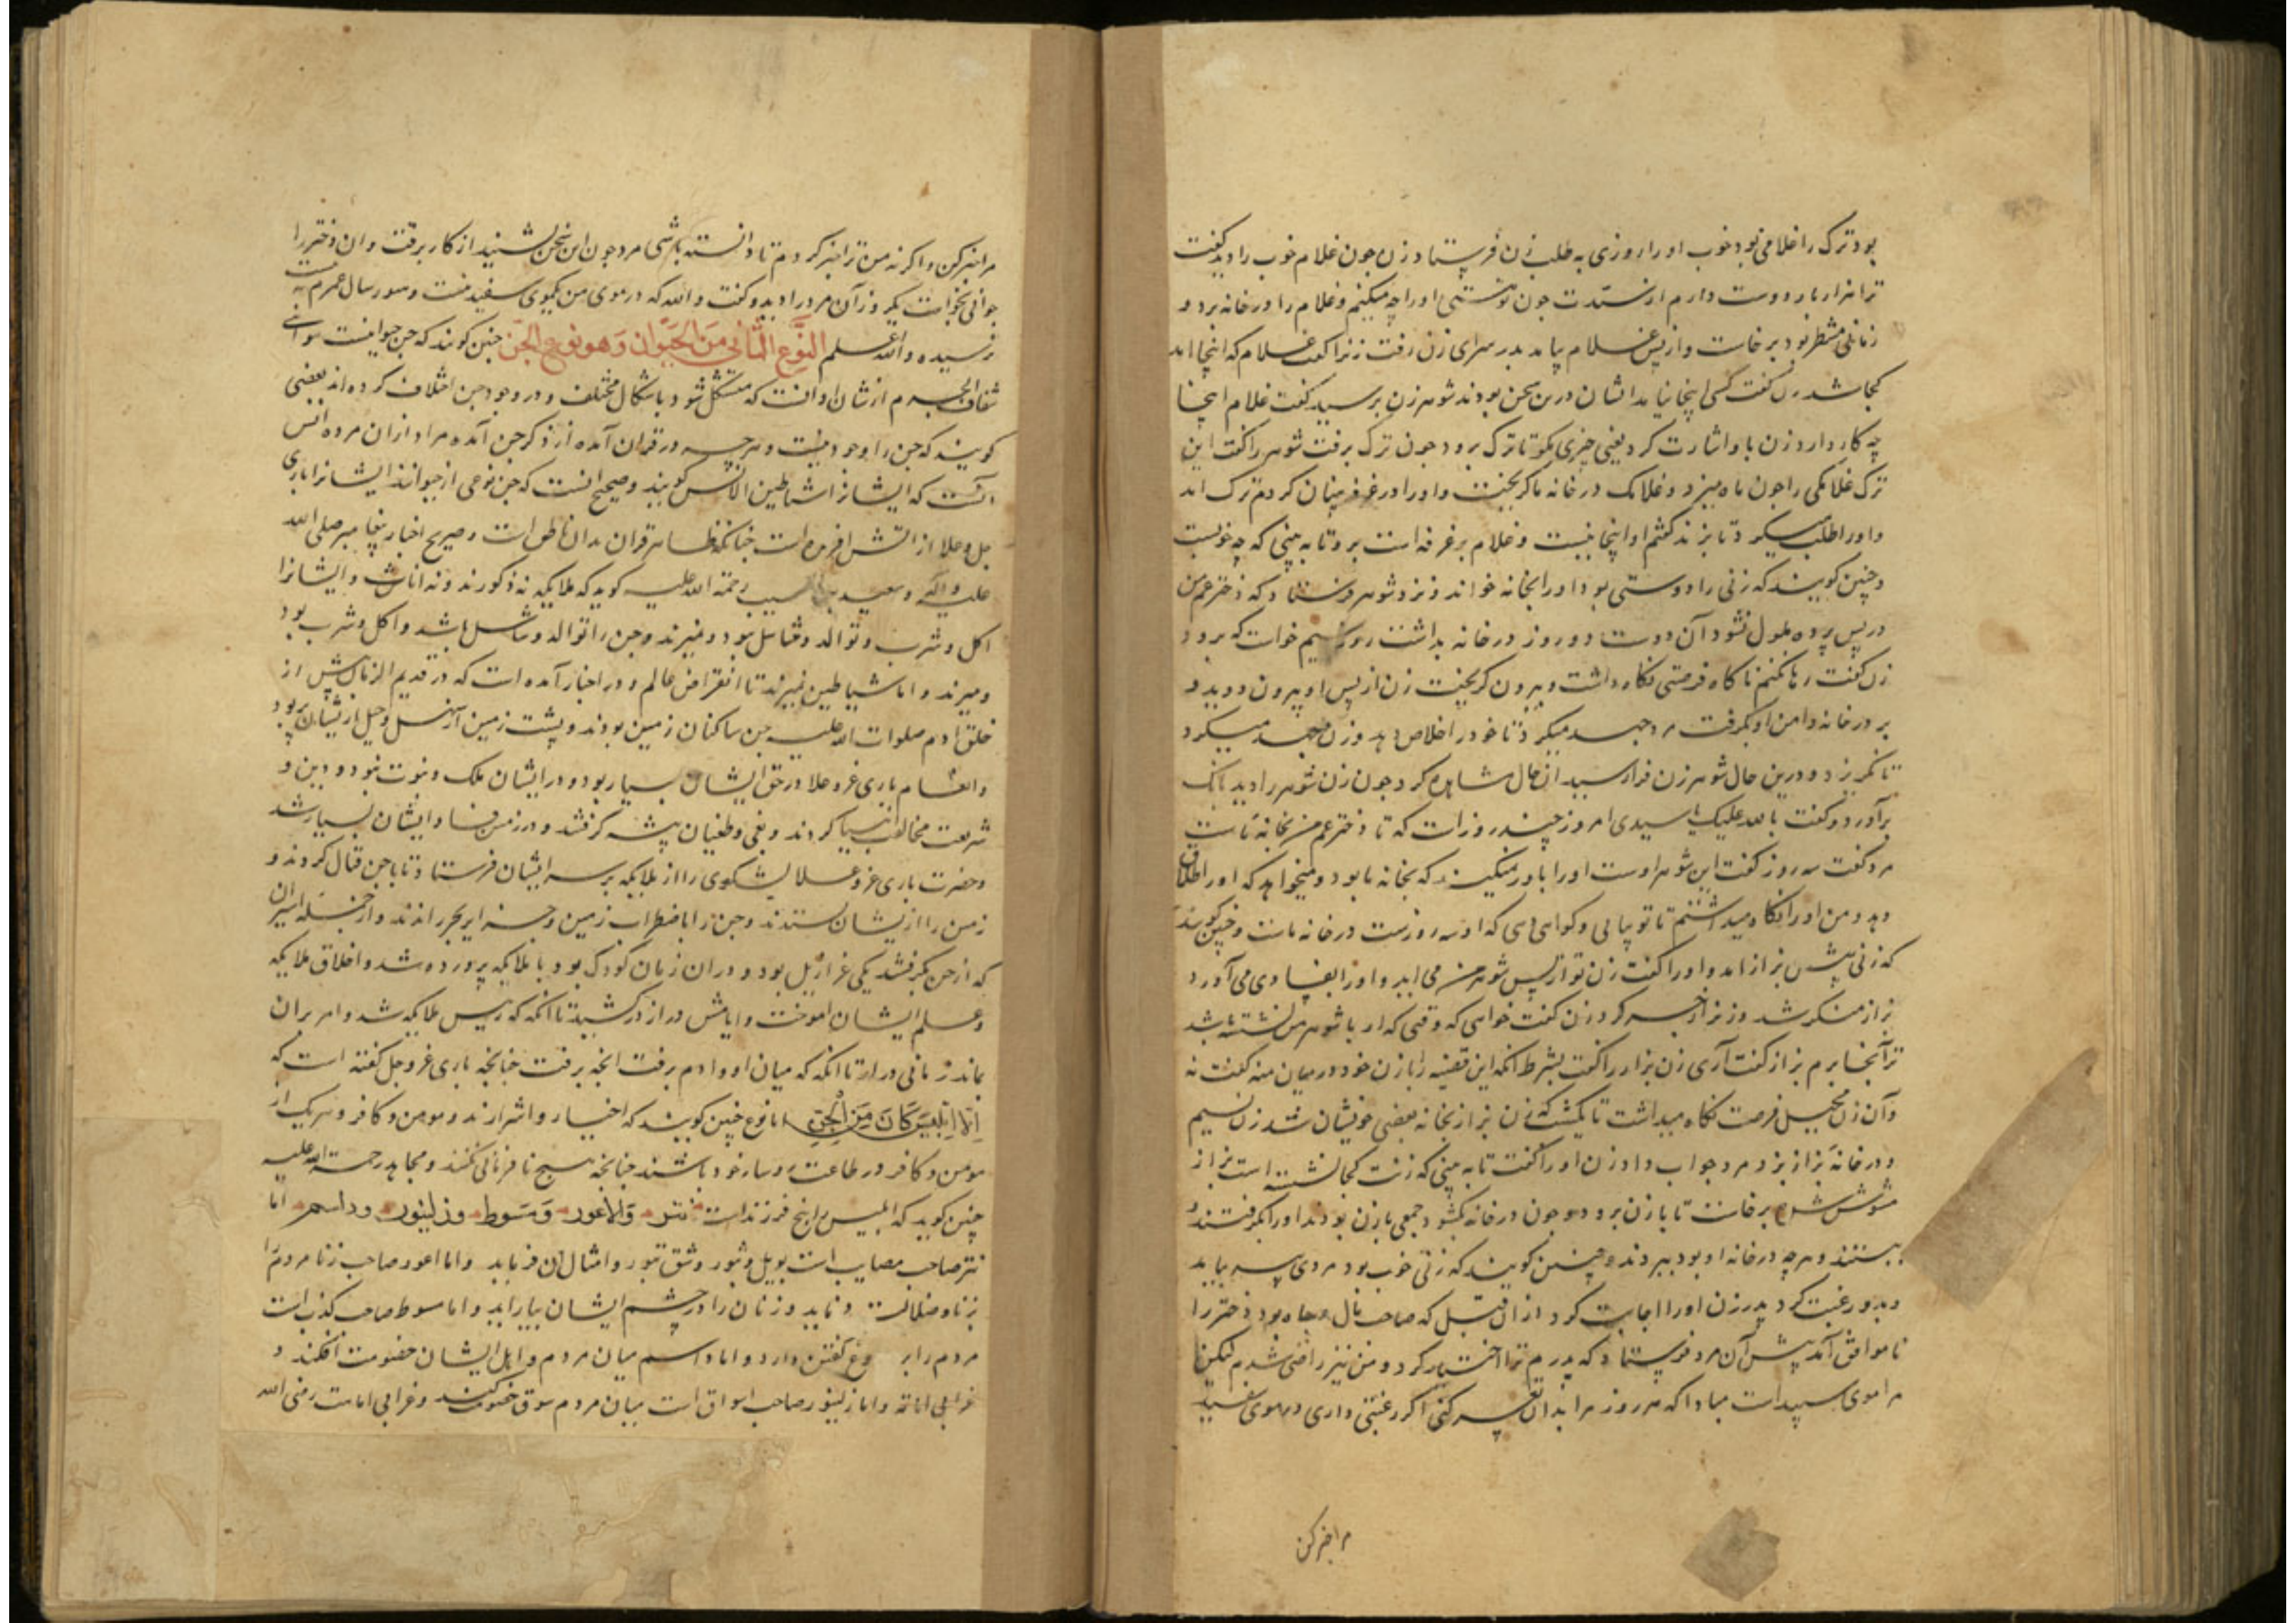 بود ترک را غلامی بود خوب او را روزی به طلب زن فرستاد زن چون غلام خوب را دید گفت
ترا هزار بار دوست دارم از سیدت چون تو هستی او را چه میکنم و غلام را در خانه برد و
زمانی منتظر بود برخاست و از پس غلام بیامد بدر سرای زن رفت زنرا گفت غلام که اینجا امد
کجا شد زن گفت کسی اینجا نیامد ایشان درین سخن بودند شوهر زن برسید گفت غلام اینجا
چه کار دارد زن با و اشارت کرد یعنی چیزی مگو تا ترک برود چون ترک برفت شوهر را گفت این
ترک غلامکی را چون ماه میزد و غلامک در خانه ما گریخت و او را در غرفه پنهان کردم ترک امد
و او را طلب میکرد تا بزند گفتم او اینجا نیست و غلام بر غرفه است برو تا به بینی که چه خوبست
و چنین گویند که زنی را دوستی بود او را بخانه خواند و نزد شوهر فرستاد که دختر عم من
در پس پرده ملول نشود آن دوست دو روز در خانه بداشت روز سیم خواست که برود
زن گفت رها نکنم ناکاه فرصتی نکاه داشت و بیرون گریخت زن از پس او بیرون دوید و
بر در خانه دامن او بگرفت مرد جهد میکرد تا خود را خلاص دهد و زن جهد میکرد
تا نگریزد و درین حال شوهر زن فرا رسید ان حال مشاهده کرد چون زن شوهر را دید بانک
برآورد و گفت بالله علیک یا سیدی امروز چند روز است که تا دختر عم من بخانه ماست
مرد گفت سه روز گفت این شوهر اوست او را باور نمیکند که بخانه ما بود و میخواهد که او را طلاق
دهد و من او را نکاه میداشتم تا تو بیایی و گواهی دهی که او سه روز ست در خانه ماست و چنین گویند
که زنی پیش بزاز امد و او را گفت زن تو از پس شوهر من می اید و او را بفساد می آورد
بزاز منکر شد و زنرا زجر کرد زن گفت خواهی که وقتی که او با شوهر من نشسته باشد
ترا آنجا برم بزاز گفت آری زن بزاز را گفت بشرط انکه این قضیه را با زن خود در میان منه گفت نه
و آن زن محیل فرصت نکاه میداشت تا یکشب که زن بزاز بخانه بعضی خویشان شد زن
در خانه بزاز بزد مرد جواب داد زن او را گفت تا به بینی که زنت کجا نشسته است بزاز
مشوش شد برخاست تا با زن برود و چون در خانه بگشود جمعی با زن بودند او را بگرفتند و
ببستند و هر چه در خانه او بود ببردند و چنین گویند که زنی خوب بود مردی پیر بیامد
و بدو رغبت کرد پدر زن او را اجابت کرد از ان قبل که صاحب مال و جاه بود دختر را
ناموافق آمد پیش آن مرد فرستاد که پدرم ترا اختیار کرد و من نیز راضی شدم لیکن
مرا موی سپید است مبادا که هر روز مرا بدان سرزنش کنی اگر رغبتی داری در موی سفید
مرا خبر کن
مرا خبر کن و اگر نه من ترا خبر کردم تا دانسته باشی مرد چون این سخن بشنید از کار برفت و ان دختر را
جوانی بخواست یکروز آن مرد را دید و گفت والله که در موی من یکموی سفید نیست و هنوز سال عمرم به
نرسیده والله اعلم النَّوع الثّانی مَن الحَیَوان وَهو نوع الجّن چنین گویند که جن حیوانیست هوائی
شفاف الجرم از شان او انست که متشکل شود باشکال مختلف و در وجود جن اختلاف کرده اند بعضی
گویند که جن را وجود نیست و هر چه در قران آمده از ذکر جن آمده مراد از ان مرده انس
است که ایشانرا شیاطین الانس گویند و صحیح انست که جن نوعی از حیوانند ایشانرا باری
جل و علا از اتش افریده است چنانکه ظاهر قران بدان ناطق است و صریح اخبار پیغامبر صلی الله
علیه و اله و سعید بن المسیب رحمة الله علیه گوید که ملایکه نه ذکورند و نه اناث و ایشانرا
اکل و شرب و توالد و تناسل نبود و نمیرند و جن را توالد و تناسل باشد و اکل و شرب بود
و میرند و اما شیاطین نمیرند تا انقراض عالم و در اخبار آمده است که در قدیم الزمان پیش از
خلق ادم صلوات الله علیه جن ساکنان زمین بودند و پشت زمین از نسل و خیل ایشان پر بود
و انعام باری عز و علا در حق ایشان بسیار بود و در ایشان ملک و نبوت بود و دین و
شریعت مخالفت انبیا کردند و بغی و طغیان پیشه گرفتند و در زمین فساد ایشان بسیار شد
و حضرت باری عز و علا لشکری را از ملایکه بر سر ایشان فرستاد تا با جن قتال کردند و
زمین را از ایشان بستدند و جن را باطراف زمین و جزایر بحر راندند و از جمله اسیران
که از جن بگرفتند یکی عزازیل بود و در ان زمان کودک بود با ملایکه پرورده شد و اخلاق ملایکه
و علم ایشان اموخت و ایامش دراز در کشید تا انکه که رییس ملایکه شد و امر بر ان
بماند زمانی دراز تا انکه که میان او و ادم برفت انچه برفت چنانچه باری عز و جل گفته است که
اِلّا اِبْلِیسَ کَانَ مِنَ الْجِنِ اما نوع چنین گویند که اخیار و اشرارند و مومن و کافر و هر یک از
مومن و کافر در طاعت روسا خود باشند چنانچه هیچ نافرمانی نکنند و مجاهد رحمة الله علیه
چنین گوید که ابلیس را پنج فرزند است نتر والاعور ومسوط وزلینور وداسم اما
نتر صاحب مصایب است بویل و ثبور و شق و امثال ان فرماید و اما اعور صاحب زنا مردم را
بزنا و ضلالت و زنان را در چشم ایشان بیاراید و اما مسوط صاحب کذب است
مردم را بر دروغ گفتن دارد و اما داسم میان مردم و اهل ایشان خصومت افکند و
و اما زلینور صاحب اسواق است میان مردم سوق خصومت کند و رضی الله